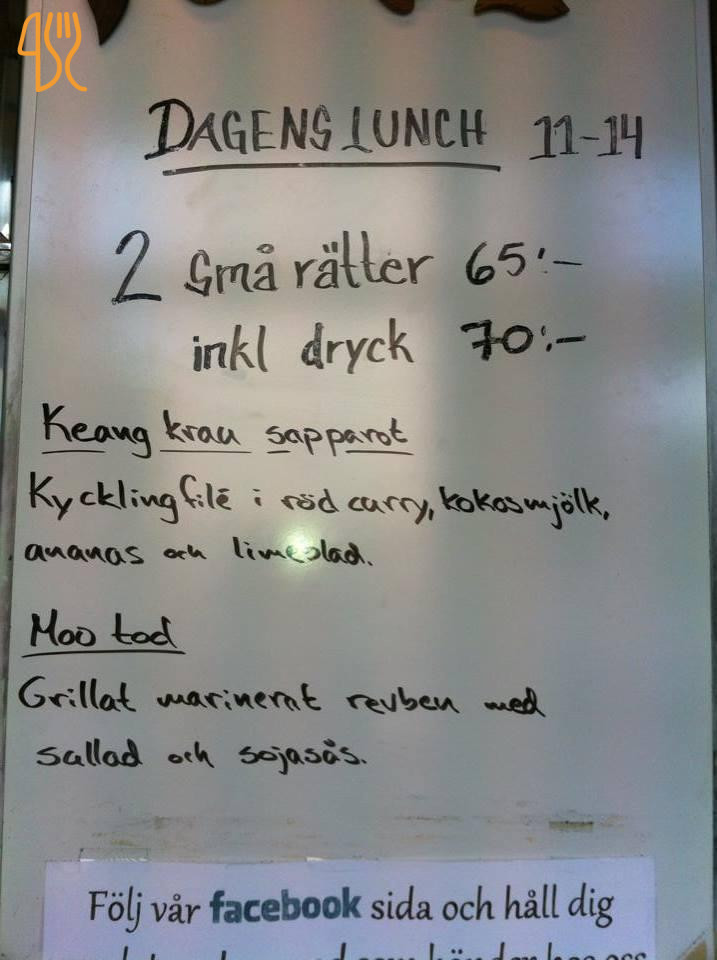 DAGENS LUNCH 11-14
2 små rätter 65:-
inkl dryck 70:-
Keang krau sapparot
Kycklingfilé i röd curry, kokosmjölk,
ananas och limeblad.
Moo tod
Grillat marinerat revben med
sallad och sojasås.
Följ vår facebook sida och håll dig